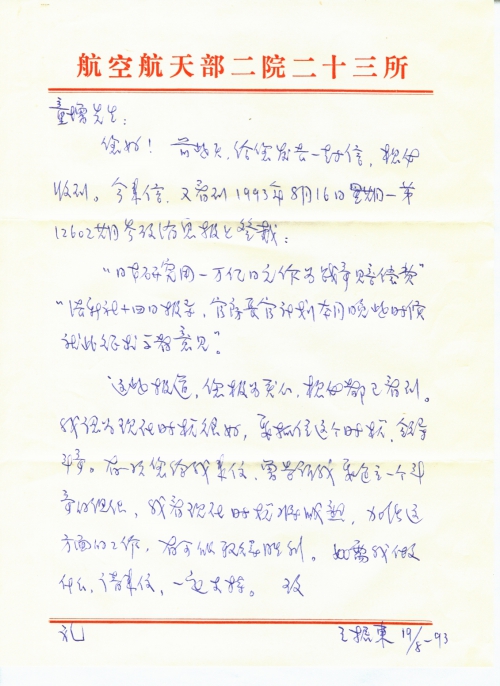 航空航天部二院二十三所
童增先生:
您好！前些天，给您发去一封信，想必
收到。今来信，又看到1993年8月16日星期一第
12602期参考消息报上登载:
"日本研究用一万亿日元作为战争赔偿费"
"法新社十四日报导，官房长官计划在本月晚些时候
就此征求了有意见"。
这些报道，您极为关心，想必都已看到。
我认为现在时机很好，要抓住这个时机，
斗争。有一次您给我来信，曾告诉我要包
，我看现在时机将成熟，加强这
方面的工作，有可能取得胜利。如需我做
什么，请来信，一定支持。 致
礼 王振东 19/8-93